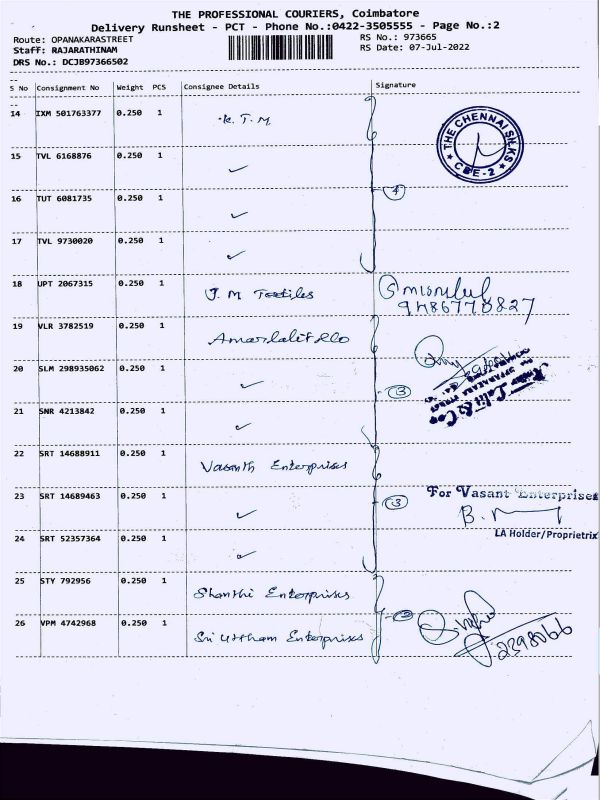 THE PROFESSIONAL COURIERS, Coimbatore
Delivery Runsheet - PCT - Phone No.:0422-3505555 - Page No.:2
Route: OPANAKARASTREET
RS No.: 973665
Staff: RAJARATHINAM
RS Date: 07-Jul-2022
DRS No.: DCJB97366502
S No Consignment No Weight PCS Consignee Details Signature
14 IXM 501763377 0.250 1 K.T.M
THE CHENNAI SILKS
CBE-2
15 TVL 6168876 0.250 1 ✓
4
16 TUT 6081735 0.250 1 ✓
17 TVL 9730020 0.250 1 ✓
18 UPT 2067315 0.250 1 J.M Textiles
9486770827
19 VLR 3782519 0.250 1
20 SLM 298935062 0.250 1 ✓
3
21 SNR 4213842 0.250 1 ✓
22 SRT 14688911 0.250 1 Vasanth Enterprises
For Vasant Enterprises
23 SRT 14689463 0.250 1 ✓
3
LA Holder/Proprietrix
24 SRT 52357364 0.250 1 ✓
25 STY 792956 0.250 1 Shanthi Enterprises
26 VPM 4742968 0.250 1 Sri Uttham Enterprises
2398066